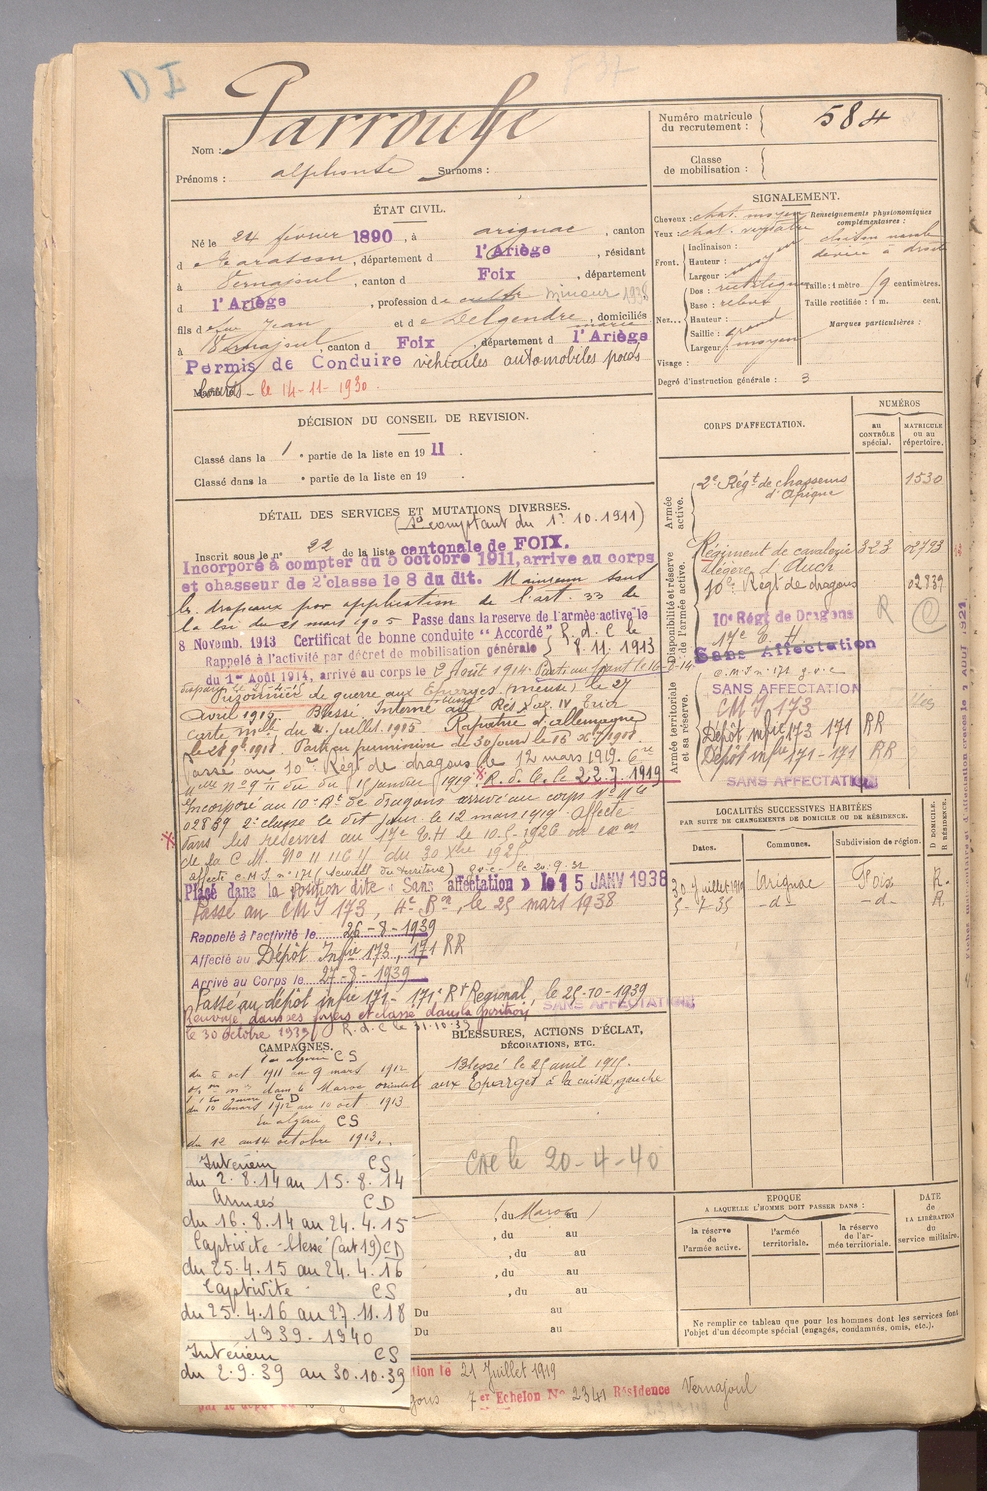 D I
F 37
Nom : Parroube
Prénoms : alphonse Surnoms :
Numéro matricule du recrutement : 584
Classe de mobilisation :
ÉTAT CIVIL.
Né le 24 février 1890, à arignac, canton
d e Tarascon, département d l'Ariège, résidant
à Vernajoul, canton d Foix, département
d l'Ariège, profession d e mineur 1938
fils d e feu Jean et d e Delgendre, domiciliés
à Vernajoul, canton d Foix, département d l'Ariège
Permis de Conduire véhicules automobiles poids
lourds - le 14-11-1930.
SIGNALEMENT.
Cheveux : chat. moyen
Yeux : chat.
Front. Inclinaison :
Hauteur : moy
Largeur :
Nez... Dos : rectiligne
Base : relevé
Hauteur :
Saillie : grand
Largeur : moyen
Visage :
Renseignements physionomiques complémentaires :
cloison nasale
déviée à droite
Taille : 1 mètre centimètres.
Taille rectifiée : 1 m. cent.
Marques particulières :
Degré d'instruction générale : 3
DÉCISION DU CONSEIL DE REVISION.
Classé dans la 1e partie de la liste en 1911.
Classé dans la e partie de la liste en 19
CORPS D'AFFECTATION.
NUMÉROS
AU CONTRÔLE spécial.
MATRICULE OU AU répertoire.
Armée active.
2e Régt de chasseurs d'afrique 1530
Disponibilité et réserve de l'armée active.
Régiment de cavalerie légère d'Auch 323 02793
10e Régt de dragons 02839
10e Régt de Dragons R
17e E. H.
Sans Affectation
Armée territoriale et sa réserve.
C.M.I n° 171 g.v.c
SANS AFFECTATION
CM I 173
Dépôt infie 173 171 RR
Dépôt infie 171-171 RR
SANS AFFECTATION
DÉTAIL DES SERVICES ET MUTATIONS DIVERSES.
(à comptant du 1er 10.1911)
Inscrit sous le n° 22 de la liste cantonale de FOIX.
Incorporé à compter du 5 octobre 1911, arrive au corps
et chasseur de 2e classe le 8 du dit. Maintenu sous
les drapeaux par application de l'art 33 de
la loi du 21 mars 1905 Passé dans la réserve de l'armée active le
8 Novemb. 1913 Certificat de bonne conduite "Accordé" R. d. C le 8.11.1913
Rappelé à l'activité par décret de mobilisation générale
du 1er Août 1914, arrivé au corps le Août 1914. Parti au front le 16-8-14
disparu le 25-4-15
Prisonnier de guerre aux Eparges (meuse) le 27
avril 1915. Blessé. Interné
carte du 2 juillet 1915 Rapatrié d'allemagne
le 28 9bre 1918. Parti en permission de 30 jours le
Passé au 10e Régt de dragons le 12 mars 1919.
du 15 janvier 1919. R. d. C. le 22.7.1919
Incorporé au 10e Rt de dragons arrivé au corps
02839 2e classe le dit jour le 12 mars 1919. Affecté
dans les réserves au 17e E.H le 10.5.1926 en exon
de la C M. N° 11116 du 30 Xbre 1925
affecté C.M.I n° 171 (Surveill du territoire) g.v.c. le 20.9.32
Placé dans la position dite « Sans affectation » le 15 JANV 1938
Passé au CM I 173, 4e Bie, le 25 mars 1938
Rappelé à l'activité le 26-8-1939
Affecté au Dépôt Infie 173, 171 RR
Arrivé au Corps le 27-8-1939
Passé au dépôt infie 171-171e Rt Régional, le 25-10-1939
Renvoyé dans ses foyers et classé dans la position SANS AFFECTATION
le 30 octobre 1939 R.d.C le 31.10.39
LOCALITÉS SUCCESSIVES HABITÉES
PAR SUITE DE CHANGEMENTS DE DOMICILE OU DE RÉSIDENCE.
Dates. Communes. Subdivision de région. D DOMICILE. R RÉSIDENCE.
20 juillet 1919 Arignac Foix R.
5-7-35 -d- -d- R.
CAMPAGNES.
En algérie CS
du 5 oct 1911 au 9 mars 1912
dans le Maroc oriental
En guerre CD
du 10 mars 1912 au 10 oct. 1913
En algérie CS
du 12 au 14 octobre 1913.
BLESSURES, ACTIONS D'ÉCLAT,
DÉCORATIONS, ETC.
Blessé le 25 avril 1915.
aux Eparges à la cuisse gauche
CRE le 20-4-40
Intérieur CS
du 2.8.14 au 15.8.14
Armées CD
du 16.8.14 au 24.4.15
Captivité blessé (art 19) CD
du 25.4.15 au 24.4.16
Captivité CS
du 25.4.16 au 27.11.18
1939-1940
Intérieur CS
du 2.9.39 au 30.10.39
, du Maroc au
, du au
, du au
, du au
Du au
Du au
EPOQUE
A LAQUELLE L'HOMME DOIT PASSER DANS :
la réserve de l'armée active.
l'armée territoriale.
la réserve de l'armée territoriale.
DATE de LA LIBÉRATION du service militaire.
Ne remplir ce tableau que pour les hommes dont les services font
l'objet d'un décompte spécial (engagés, condamnés, omis, etc.).
tion le 21 Juillet 1919
7er Echelon No 2341 Résidence Vernajoul